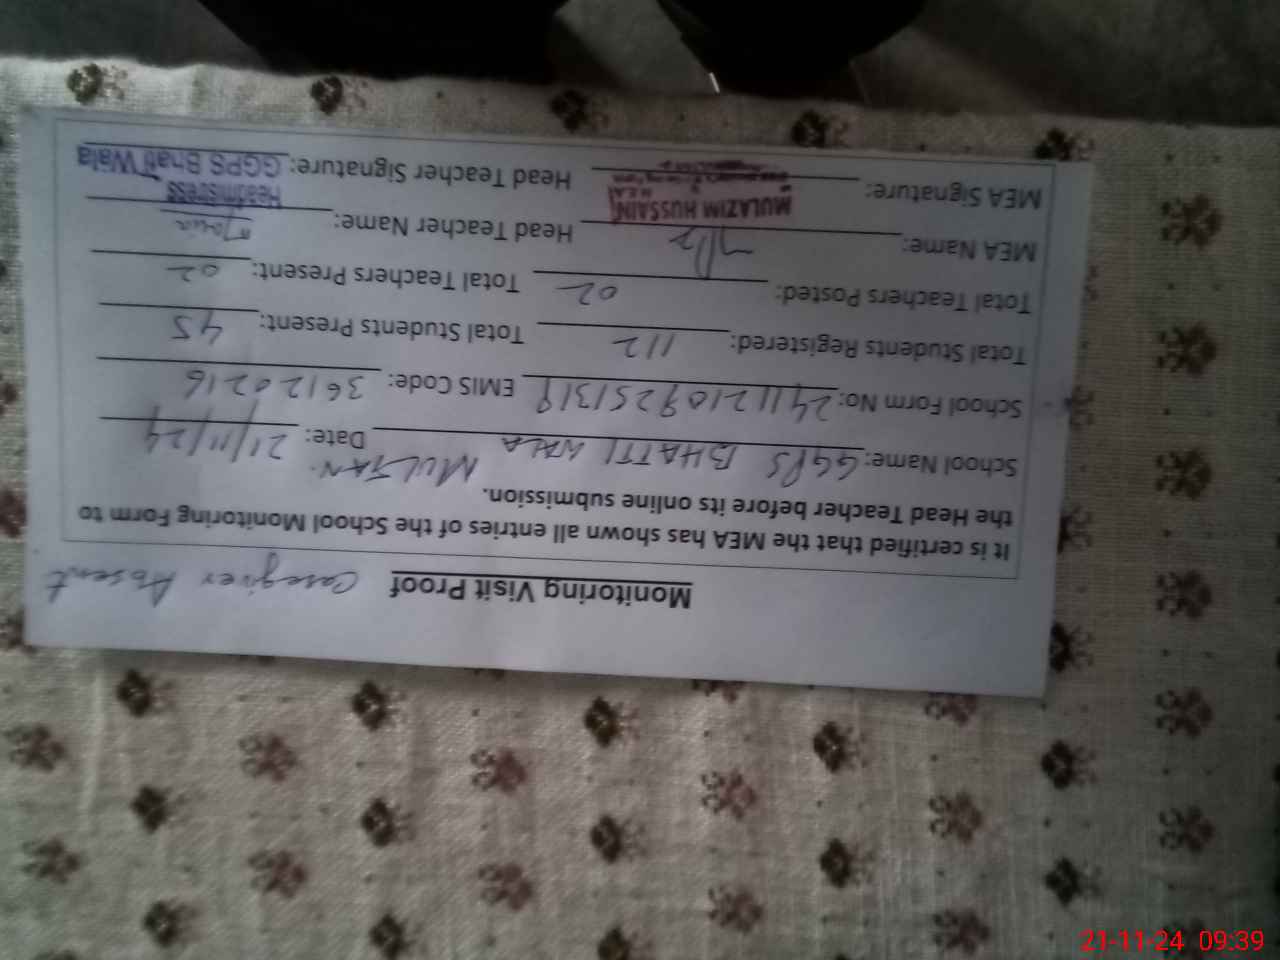 Monitoring Visit Proof Caregiver Absent
It is certified that the MEA has shown all entries of the School Monitoring Form to
the Head Teacher before its online submission.
School Name: GGPS BHATTI WALA MULTAN. Date: 21/11/24
School Form No: 241112109251319 EMIS Code: 36120216
Total Students Registered: 112 Total Students Present: 45
Total Teachers Posted: 02 Total Teachers Present: 02
MEA Name: Head Teacher Name:
MULAZIM HUSSAIN
M.E.A
Headmistress
MEA Signature: Head Teacher Signature: GGPS Bhati Wala
21-11-24 09:39